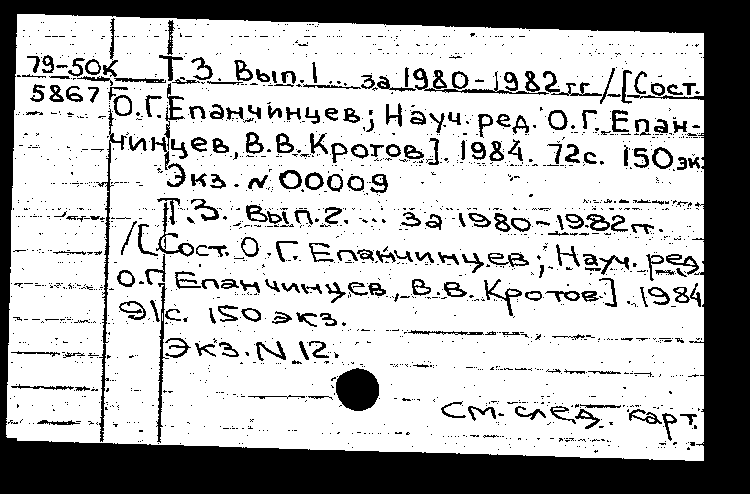 79-50к Т.3. Вып.1 ... за 1980-1982гг /[Сост.
5867 О.Г.Епанчинцев; Науч. ред. О.Г. Епан-
чинцев, В.В. Кротов]. 1984. 72с. 150 экз
Экз. № 00009
Т.3. Вып.2. ... за 1980-1982гг.
/[Сост. О.Г. Епанчинцев; Науч. ред.
О.Г. Епанчинцев, В.В. Кротов]. 1984
91с. 150 экз.
Экз. N 12.
См. след. карт.